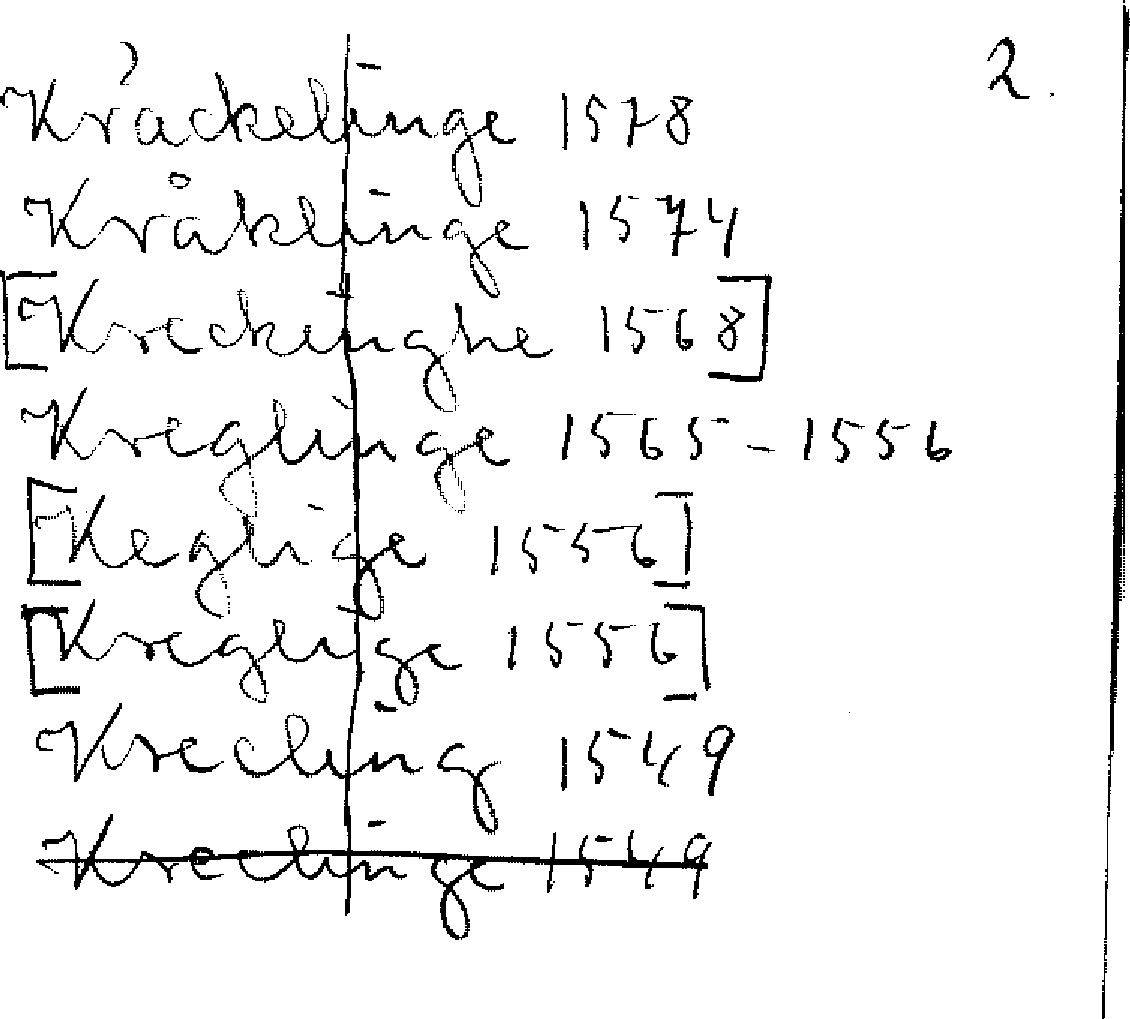 2.
Kråckelinge 1578
Kråklinge 1574
[Kreckinghe 1568]
Kreglinge 1565-1556
[Keglige 1556]
[Kreglige 1556]
Krecling 1549
Kreclinge 1549